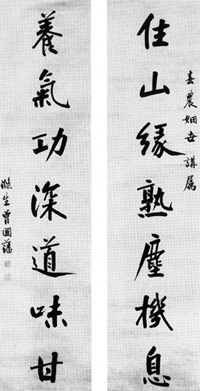 農姻世講屬
住山緣熟塵機息
養氣功深道味甘
滌生曾國藩